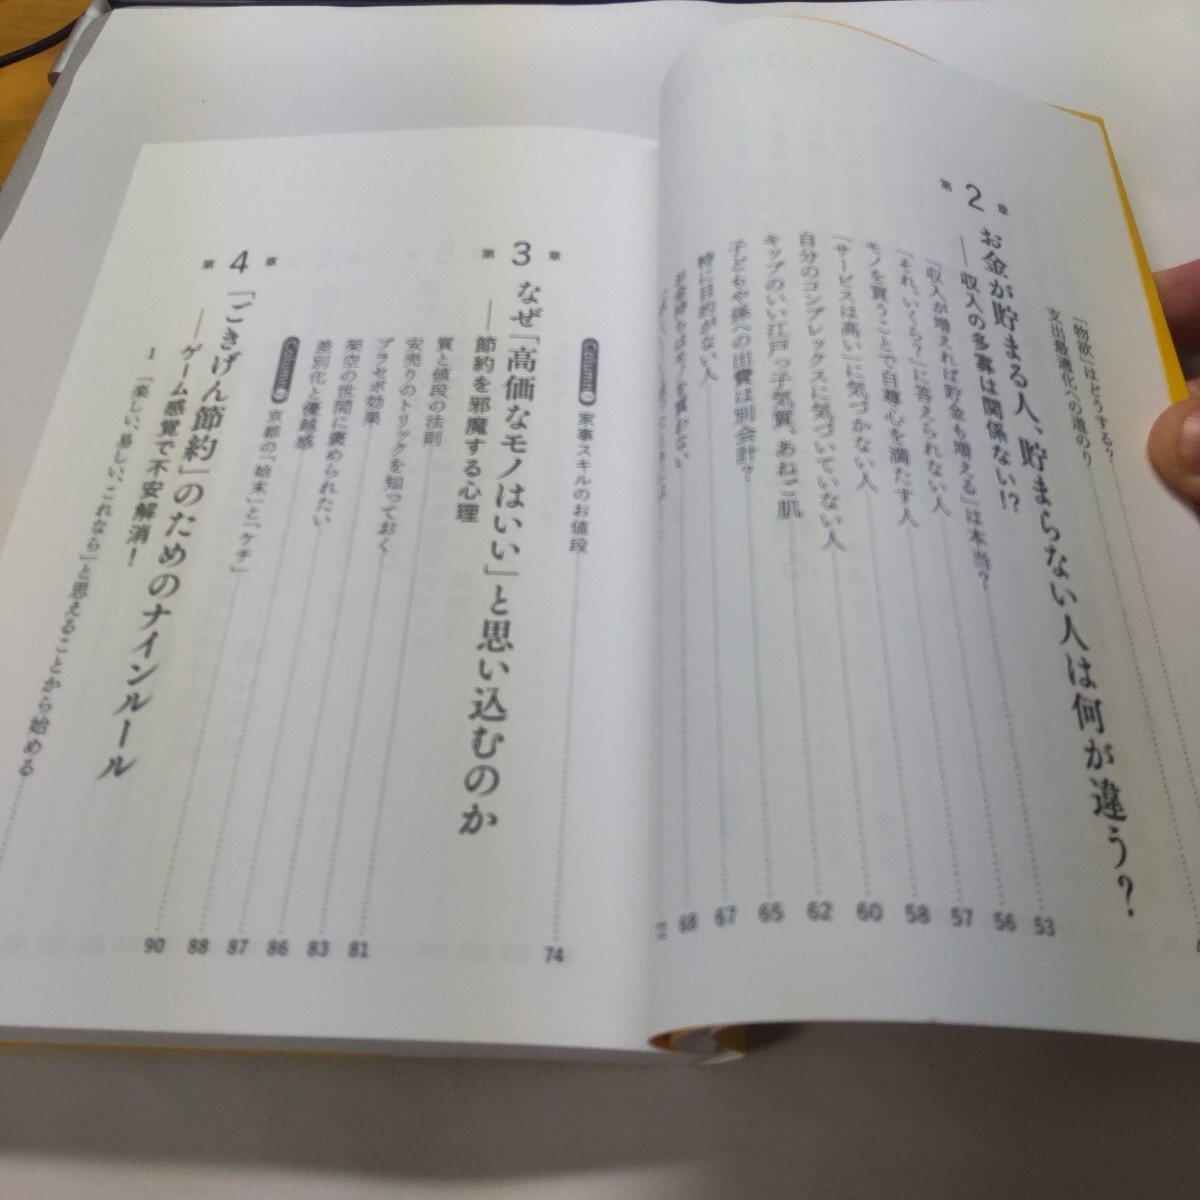 「物欲」はどうする?
支出最適化への道のり
第2章 お金が貯まる人、貯まらない人は何が違う?
――収入の多寡は関係ない!?
「収入が増えれば貯金も増える」は本当? 53
「それ、いくら?」に答えられない人 56
モノを買うことで自尊心を満たす人 57
「サービスは高い」に気づかない人 58
自分のコンプレックスに気づいていない人 60
キップのいい江戸っ子気質、あねご肌 62
子どもや孫への出費は別会計? 65
特に目的がない人 67
お金持ちはモノを買わない 68
72
Column 家事スキルのお値段 74
第3章 なぜ「高価なモノはいい」と思い込むのか
――節約を邪魔する心理
質と値段の法則
安売りのトリックを知っておく
プラセボ効果 81
架空の世間に褒められたい 83
差別化と優越感 86
Column 京都の「始末」と「ケチ」 87
第4章 「ごきげん節約」のためのナインルール
――ゲーム感覚で不安解消! 88
1 「楽しい、易しい、これなら」と思えることから始める 90